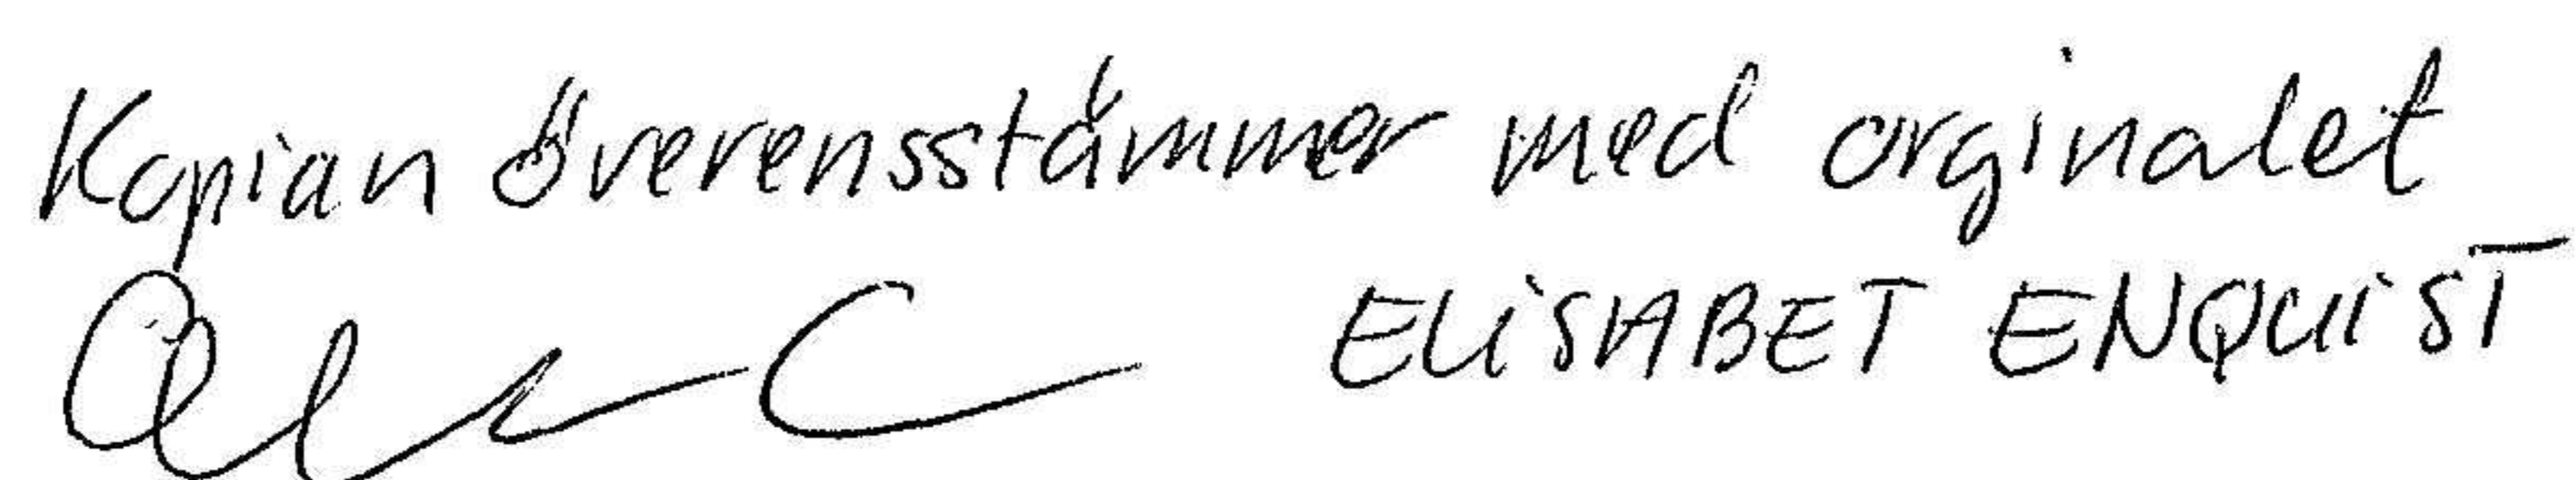 Kopian överensstämmer med orginalet
ELISABET ENQUIST